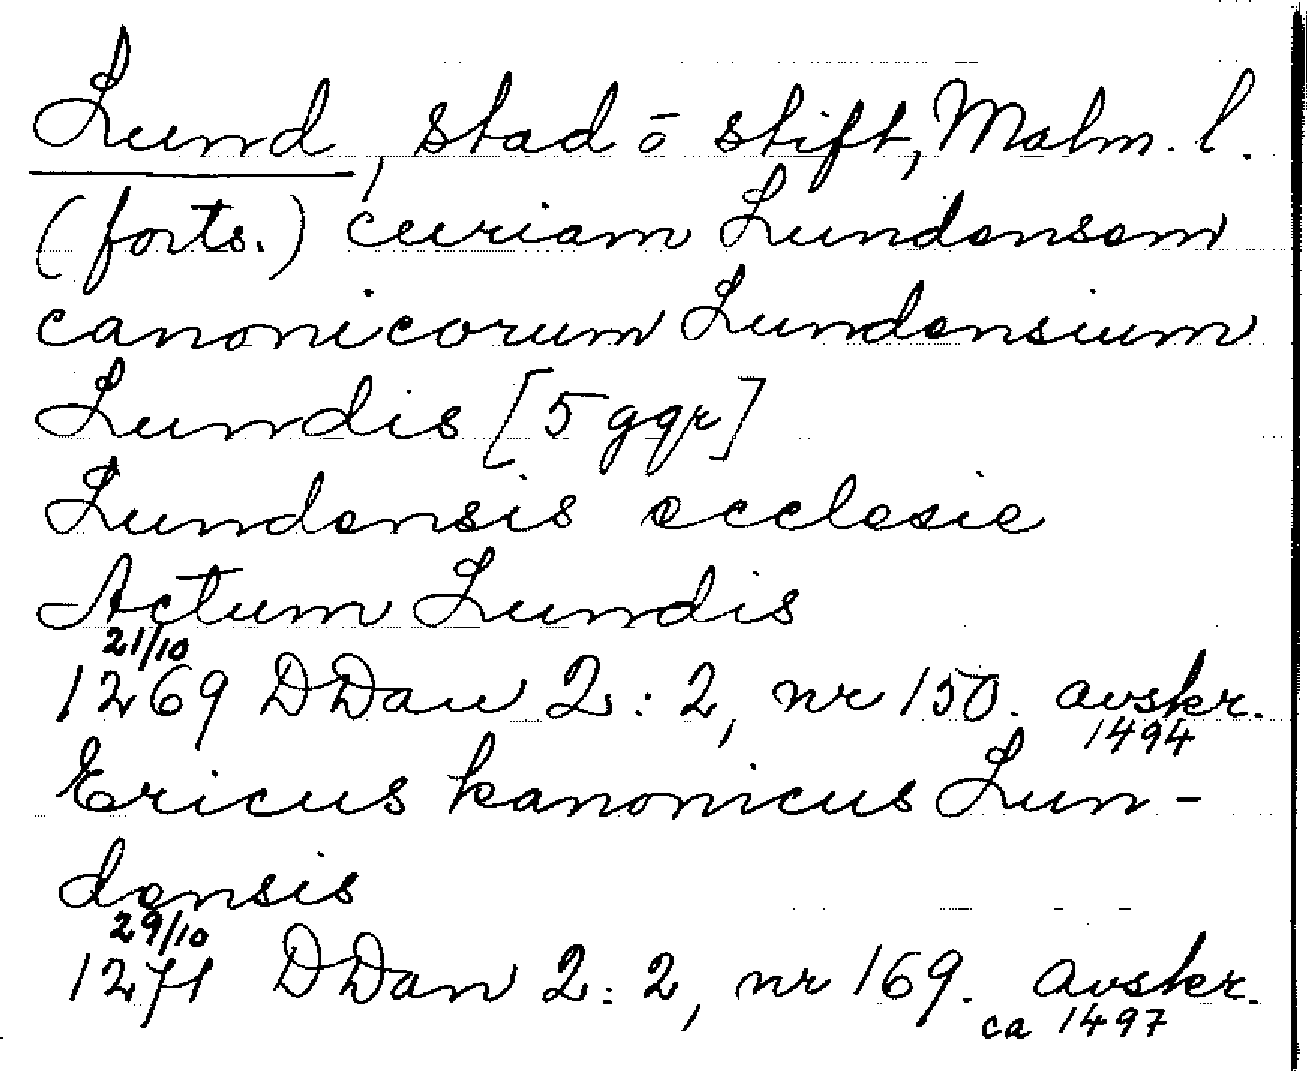 Lund, stad ō stift, Malm. l.
(forts.) curiam Lundensem
canonicorum Lundensium
Lundis [5 ggr]
Lundensis ecclesie
Actum Lundis
21/10
1269 DDan 2:2, nr 150. avskr.
1494
Ericus kanonicus Lun-
densis
29/10
1271 DDan 2:2, nr 169. avskr.
ca 1497